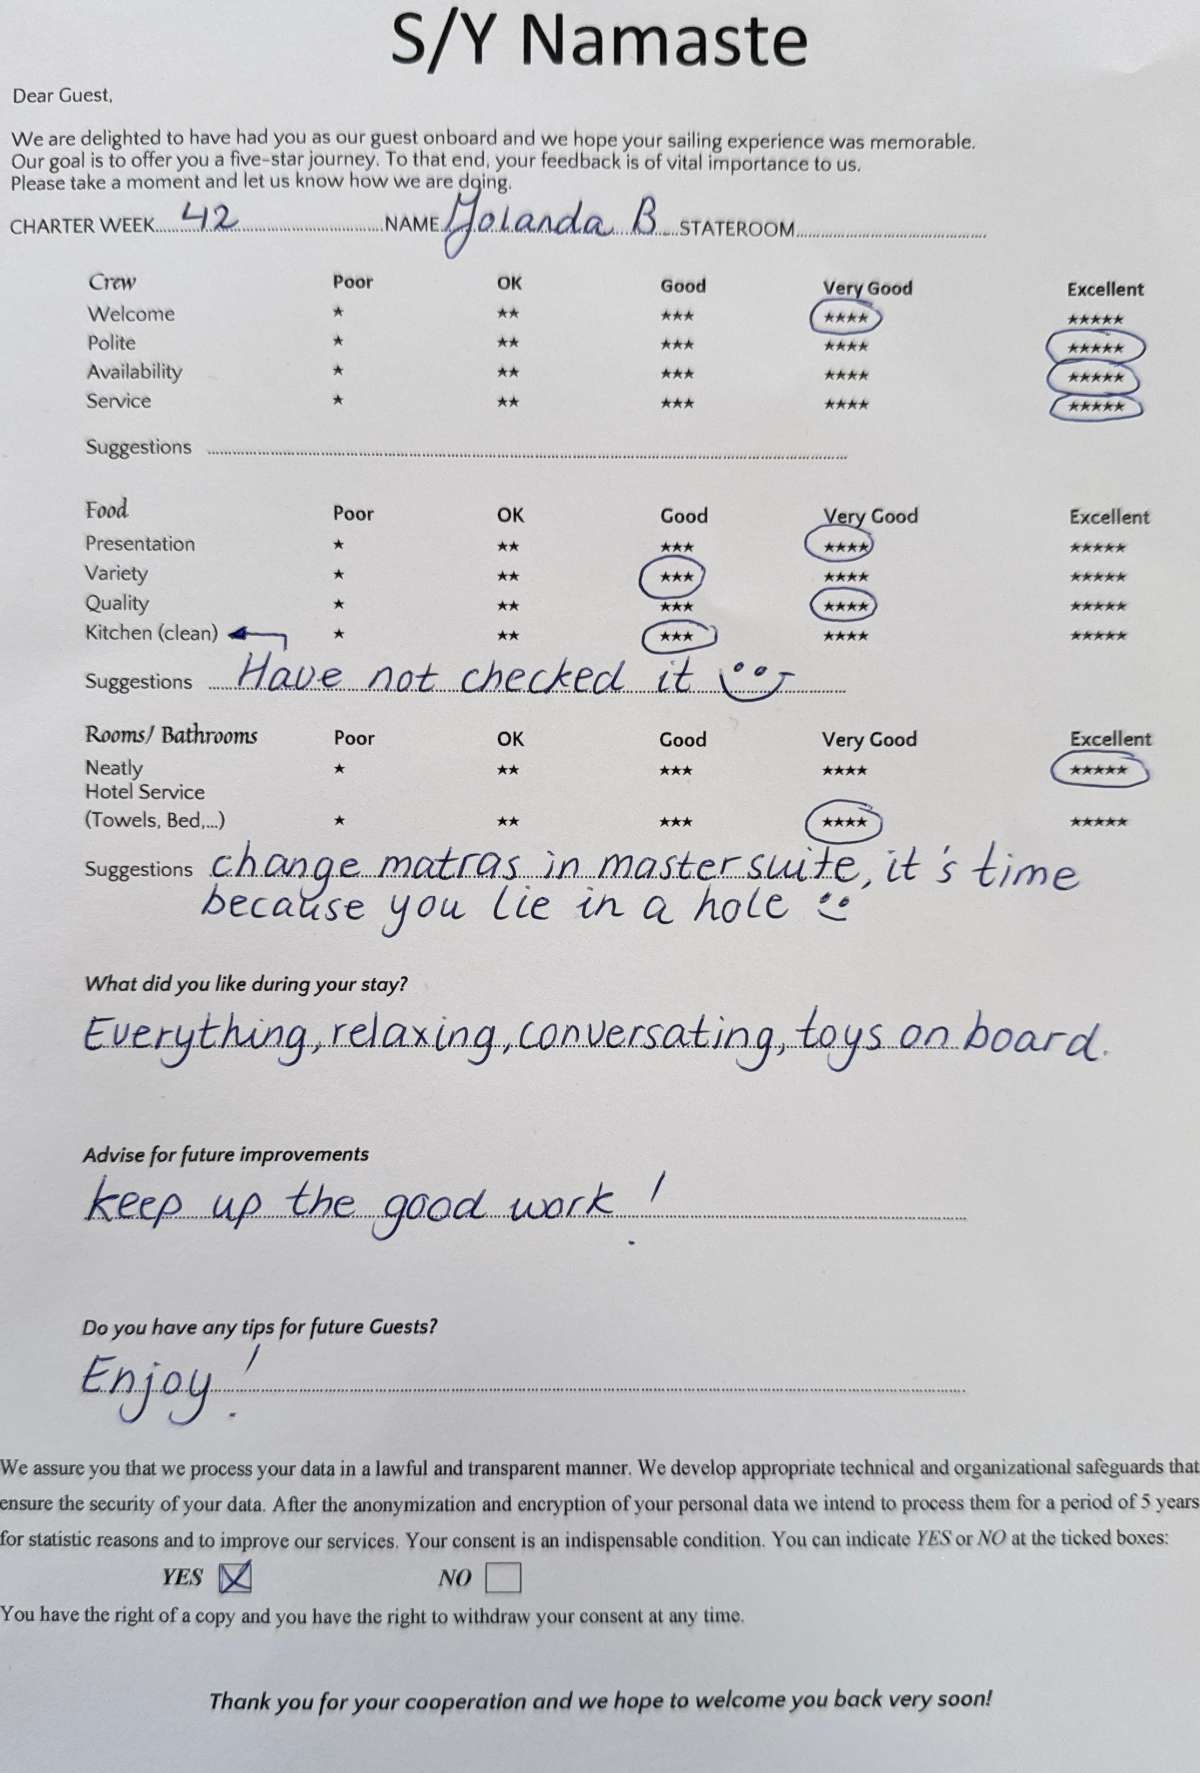 S/Y Namaste
Dear Guest,
We are delighted to have had you as our guest onboard and we hope your sailing experience was memorable.
Our goal is to offer you a five-star journey. To that end, your feedback is of vital importance to us.
Please take a moment and let us know how we are doing.
CHARTER WEEK 42 NAME Yolanda B STATEROOM
Crew Poor OK Good Very Good Excellent
Welcome ★ ★★ ★★★ ★★★★ ★★★★★
Polite ★ ★★ ★★★ ★★★★ ★★★★★
Availability ★ ★★ ★★★ ★★★★ ★★★★★
Service ★ ★★ ★★★ ★★★★ ★★★★★
Suggestions
Food Poor OK Good Very Good Excellent
Presentation ★ ★★ ★★★ ★★★★ ★★★★★
Variety ★ ★★ ★★★ ★★★★ ★★★★★
Quality ★ ★★ ★★★ ★★★★ ★★★★★
Kitchen (clean) ★ ★★ ★★★ ★★★★ ★★★★★
Suggestions Have not checked it
Rooms/ Bathrooms Poor OK Good Very Good Excellent
Neatly ★ ★★ ★★★ ★★★★ ★★★★★
Hotel Service
(Towels, Bed,...) ★ ★★ ★★★ ★★★★ ★★★★★
Suggestions change matras in master suite, it's time
because you lie in a hole
What did you like during your stay?
Everything, relaxing, conversating, toys on board.
Advise for future improvements
keep up the good work!
Do you have any tips for future Guests?
Enjoy!
We assure you that we process your data in a lawful and transparent manner. We develop appropriate technical and organizational safeguards that
ensure the security of your data. After the anonymization and encryption of your personal data we intend to process them for a period of 5 years
for statistic reasons and to improve our services. Your consent is an indispensable condition. You can indicate YES or NO at the ticked boxes:
YES NO
You have the right of a copy and you have the right to withdraw your consent at any time.
Thank you for your cooperation and we hope to welcome you back very soon!